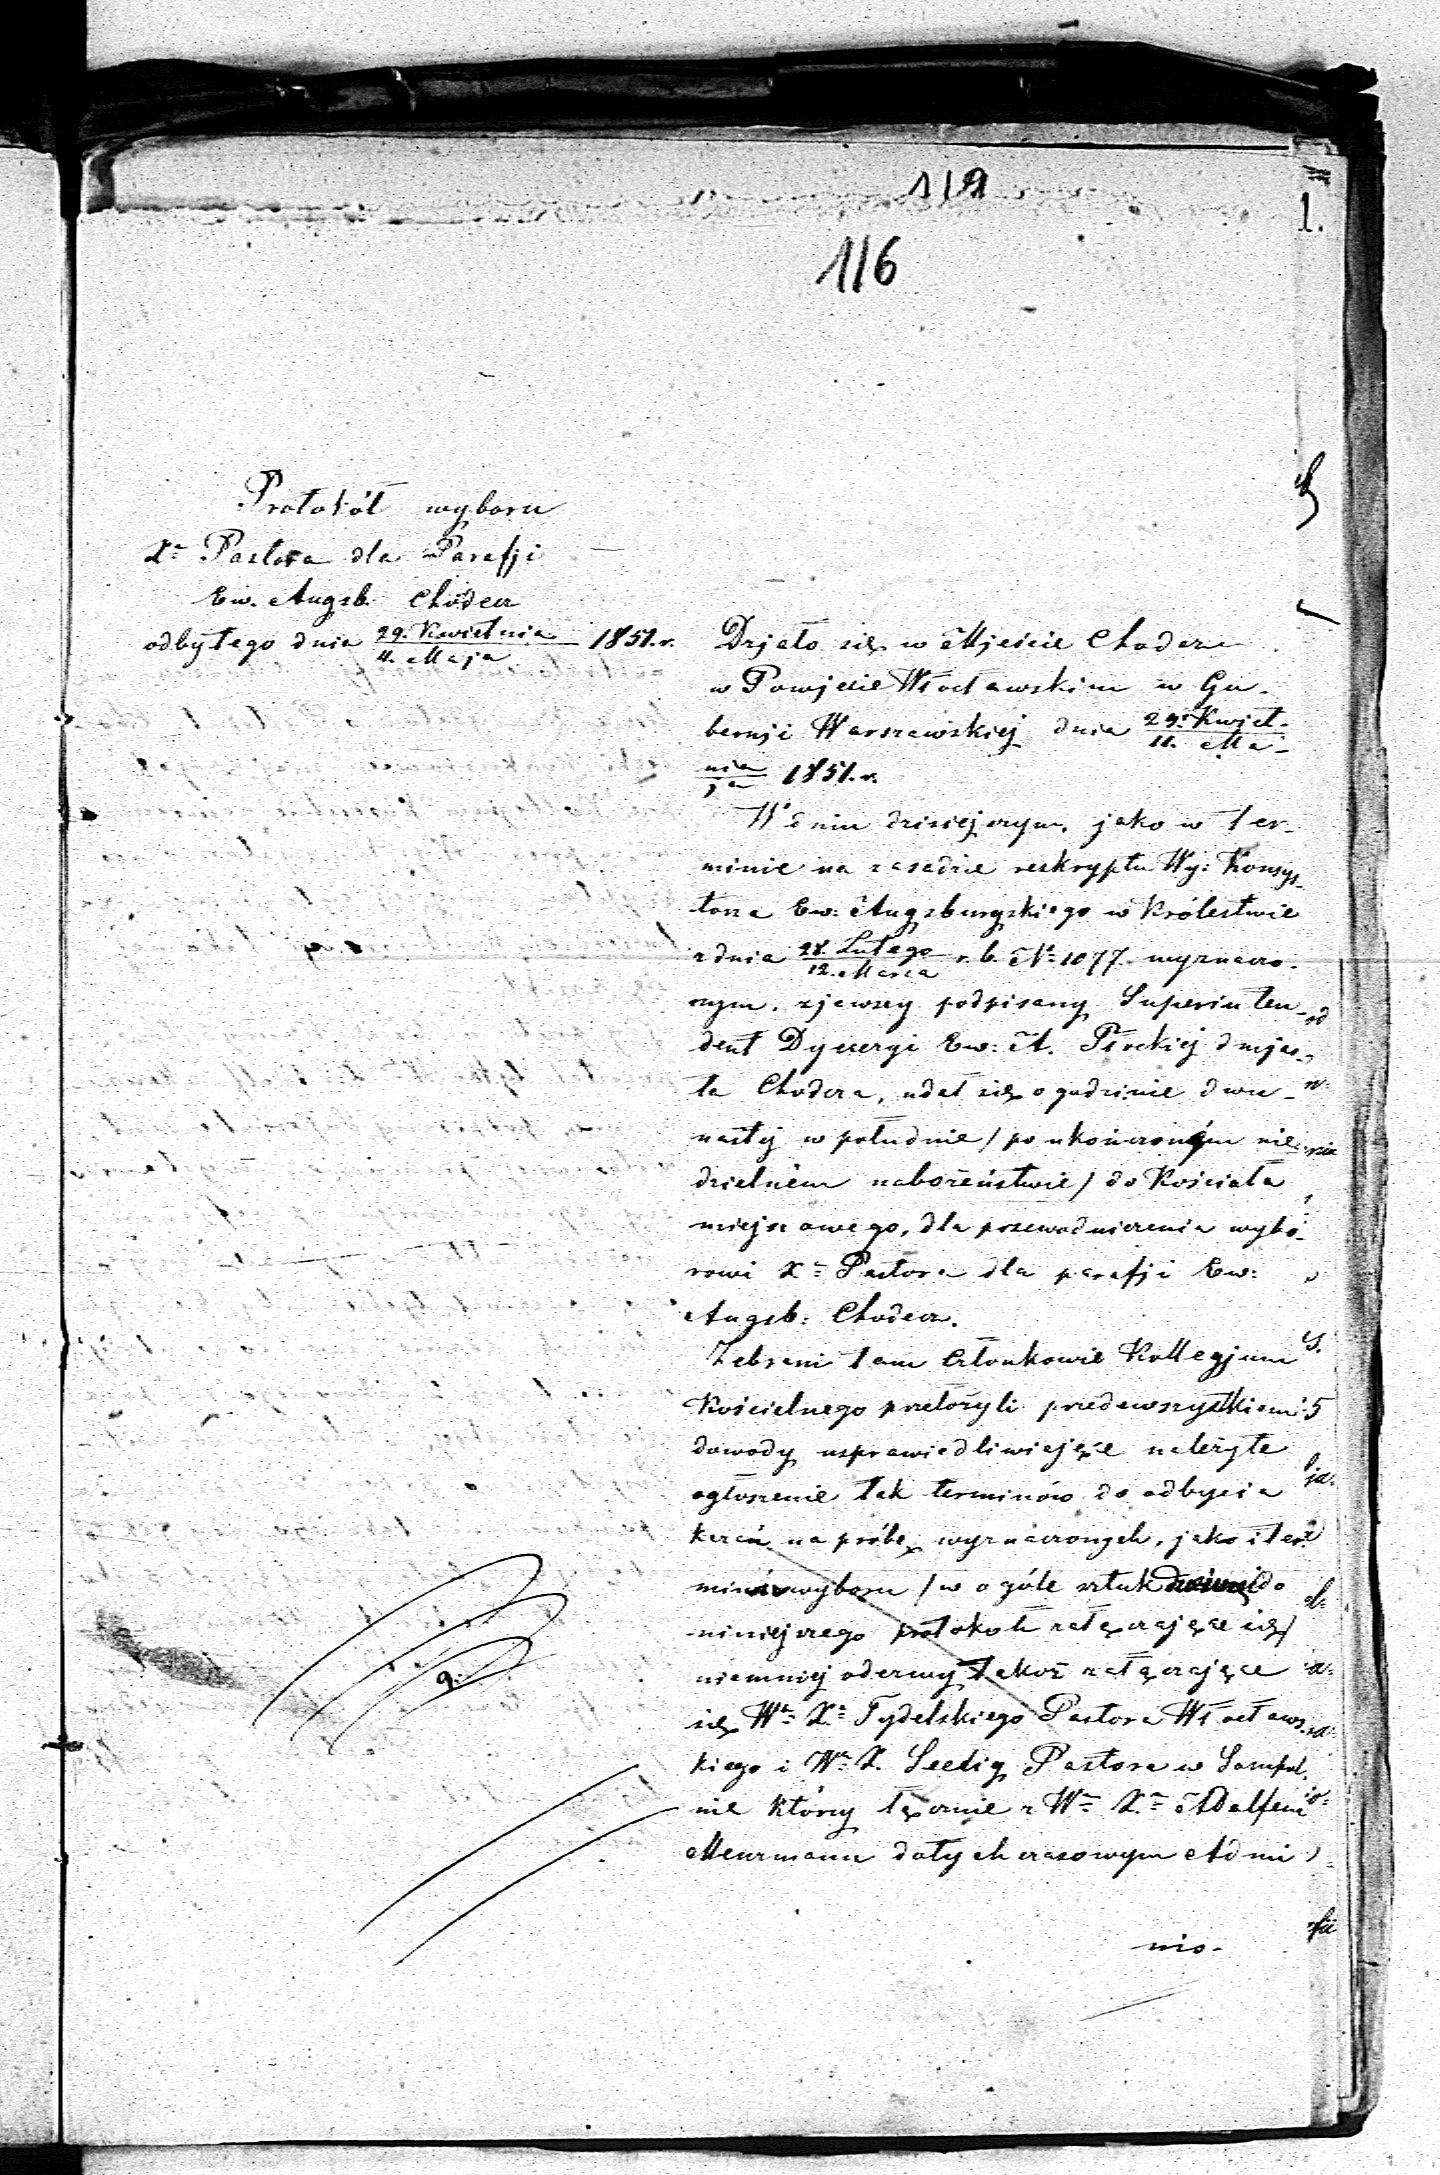 119
116
1.
Protokół wyboru
X. Pastora dla Parafji
Ew. Augsb. Chodecz
odbytego dnia 29. Kwietnia / 11. Maja 1851. r.
Działo się w Mjeście Chodczu
w Powjecie Włocławskim w Gu-
bernji Warszawskiej dnia 29. Kwiet- / 11. Ma-
nia / ja 1851. r.
W dniu dzisiejszym, jako w ter-
minie na zasadzie reskryptu Wy: Konsys-
torza Ew: Augsburgskiego w Królestwie
z dnia 28. Lutego / 12. Marca r. b. No 1077. wyznaczo-
nym, zjawszy podpisany Superinten-
dent Dyecezyi Ew: A. Płockiej do mjas-
ta Chodcza, udał się o godzinie dwu-
nastej w południe / po ukończoném nie-
dzielném nabożeństwie / do Kościoła
miejscowego, dla przewodniczenia wybo-
rowi X. Pastora dla parafji Ew:
Augsb: Chodecz.
Zebrani tam Członkowie Kollegjum
Kościelnego przełożyli przedewszystkiem
dowody usprawiedliwiające należyte
ogłoszenie tak terminów do odbycia
kazań na próbę wyznaczonych, jako i ter-
minu wyboru / w ogóle sztuk do
niniejszego protokołu załączające się /
niemniej odezwy także załączające
się Wo X. Tydelskiego Pastora Włocławs-
kiego i Wo X. Seelig Pastora w Sompol-
nie którzy łącznie z Wm X. Adolfem
Meurmann dotychczasowym Admi
nis-